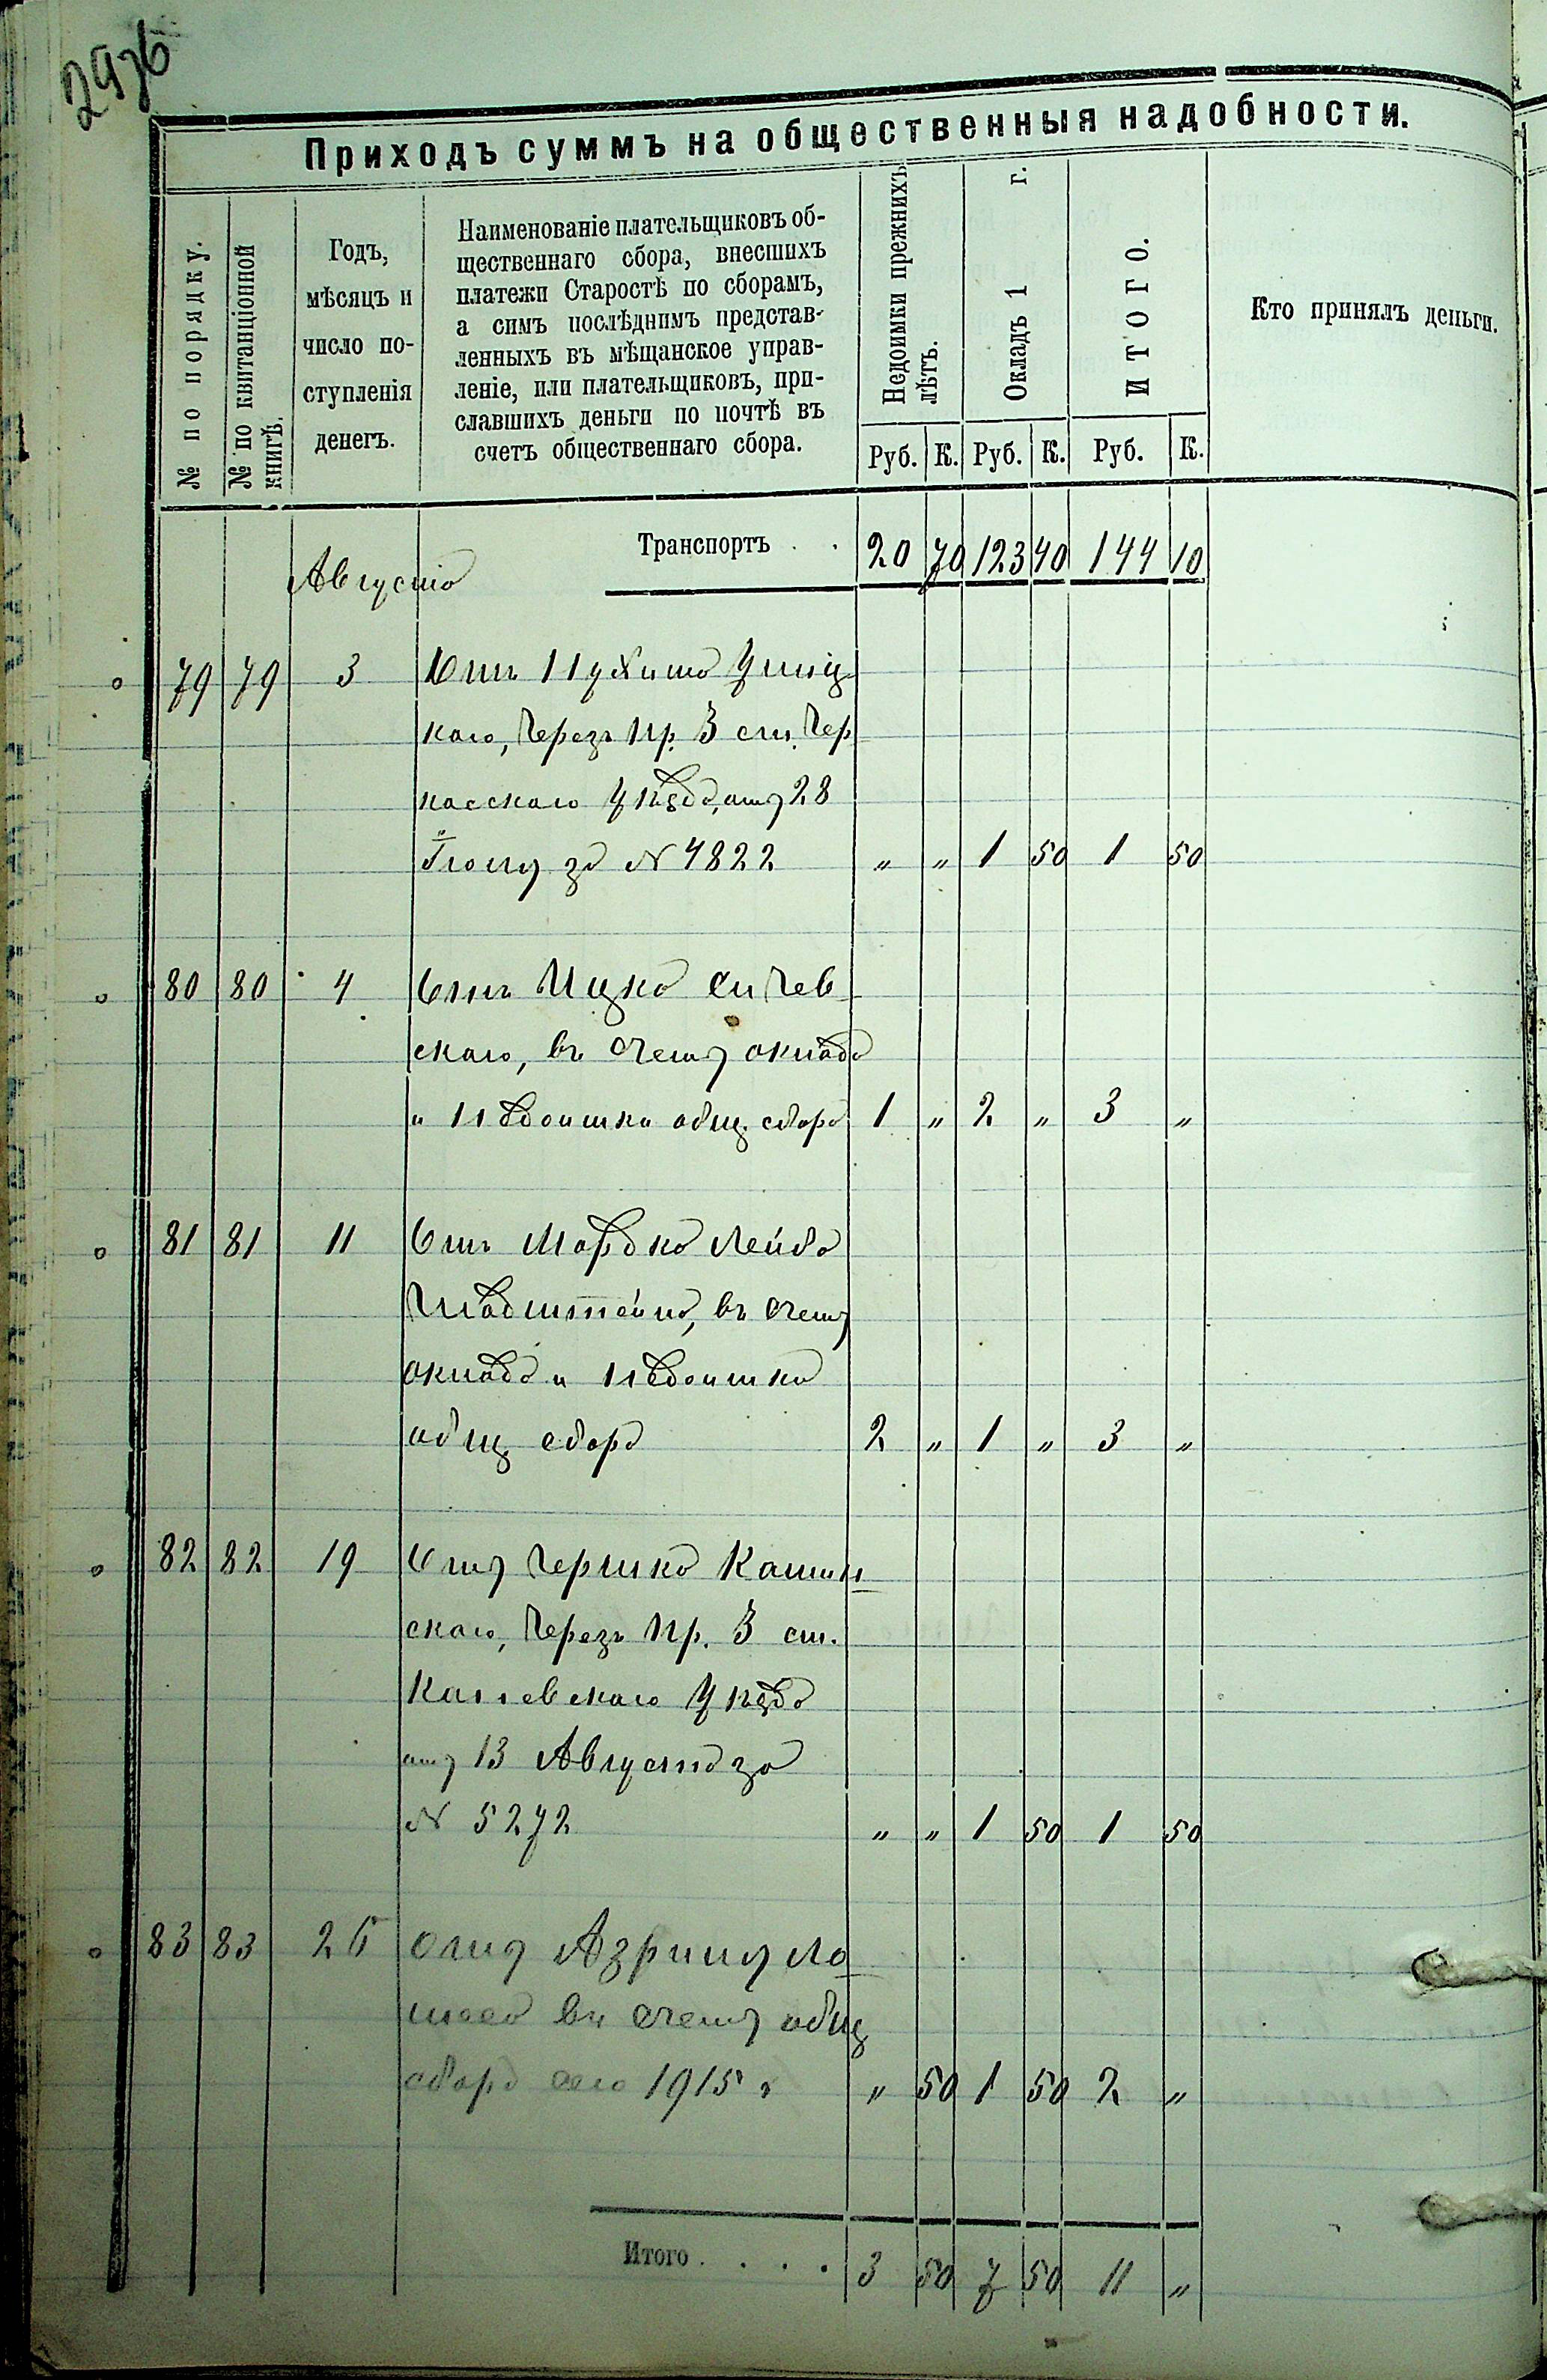 297б
Приходъ суммъ на общественныя надобности.
№ по порядку.
№ по квитанціонной
книгѣ.
Годъ,
мѣсяцъ и
число по-
ступленія
денегъ.
Наименованіе плательщиковъ об-
щественнаго сбора, внесшихъ
платежи Старостѣ по сборамъ,
а симъ послѣднимъ представ-
ленныхъ въ мѣщанское управ-
леніе, или плательщиковъ, при-
славшихъ деньги по почтѣ въ
счетъ общественнаго сбора.
Недоимки прежнихъ
лѣтъ.
Окладъ 1 г.
ИТОГО.
Кто принялъ деньги.
Руб. К. Руб. К. Руб. К.
Транспортъ . . 20 70 123 40 144 10
Августа
79 79 3 Отъ
каго, Черезъ Пр. 3 ст. Чер
касскаго уѣзда, отъ 28
Іюля за № 4822 " " 1 50 1 50
80 80 4 Отъ Ицка Сичев
скаго, въ счетъ оклада
и недоимки общ. сбора 1 " 2 " 3 "
81 81 11 Отъ Мордка Лейба
въ счетъ
оклада и недоимка
общ. сбора 2 " 1 " 3 "
82 82 19 Отъ Гершка Камин
скаго, Черезъ Пр. 3 ст.
Каневскаго уѣзда
отъ 13 Августа за
№ 5272 " " 1 50 1 50
83 83 Отъ
въ счетъ общ
сбора сего 1915 г " 50 1 50 2 "
Итого . . . . 3 50 7 50 11 "